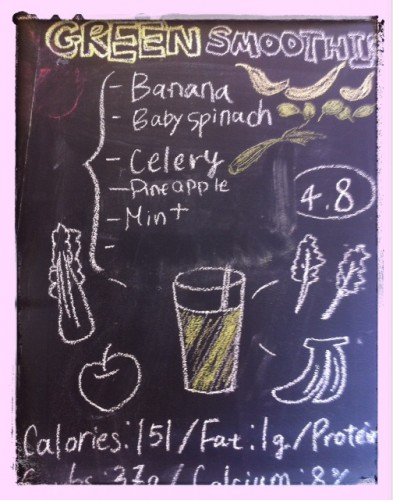 GREEN SMOOTHIE
- Banana
- Baby spinach
- Celery
- Pineapple
- Mint
-
4.8
Calories: 151/Fat: 1g/Protein
bs: 37g / Calcium: 8%